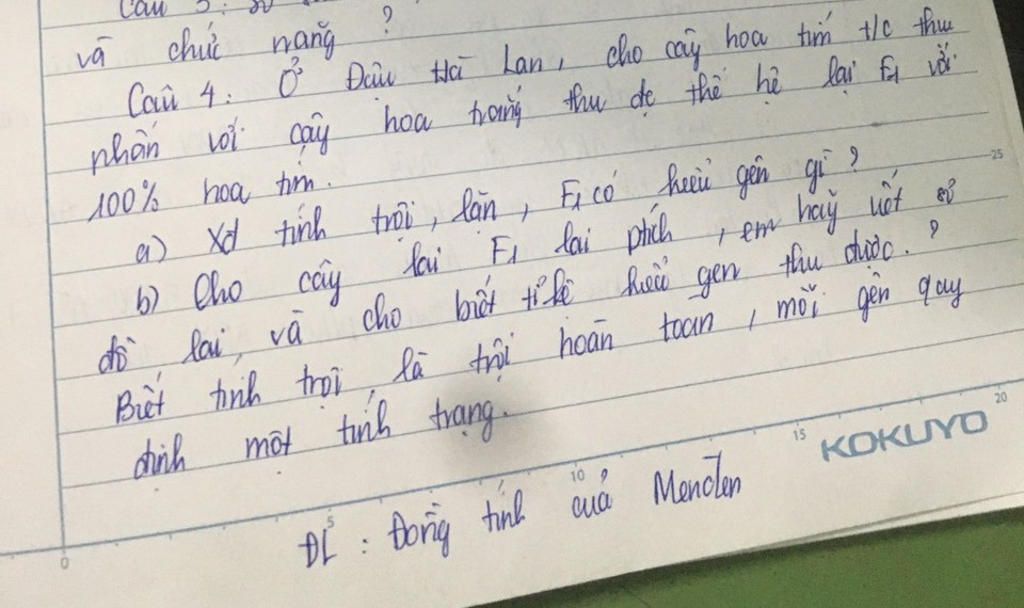 Câu 3:
và chức nang ?
Câu 4 : Ở Đậu Hà Lan, cho cây hoa tím t/c thu
nhấn với cây hoa trắng thu đc thế hệ lại F1 với
100% hoa tím.
a) Xđ tính trội, lặn, F1 có kiểu gên gì ?
b) Cho cây lai F1 lai phích, em hãy viết sơ
đồ lai, và cho biết tỉ lệ kiểu gen thu được. ?
Biết tính trội, là trội hoàn toan, mỗi gên quy
định một tính trạng.
ĐL : Đồng tính của Menđen
0 5 10 15 20
25
KOKUYO